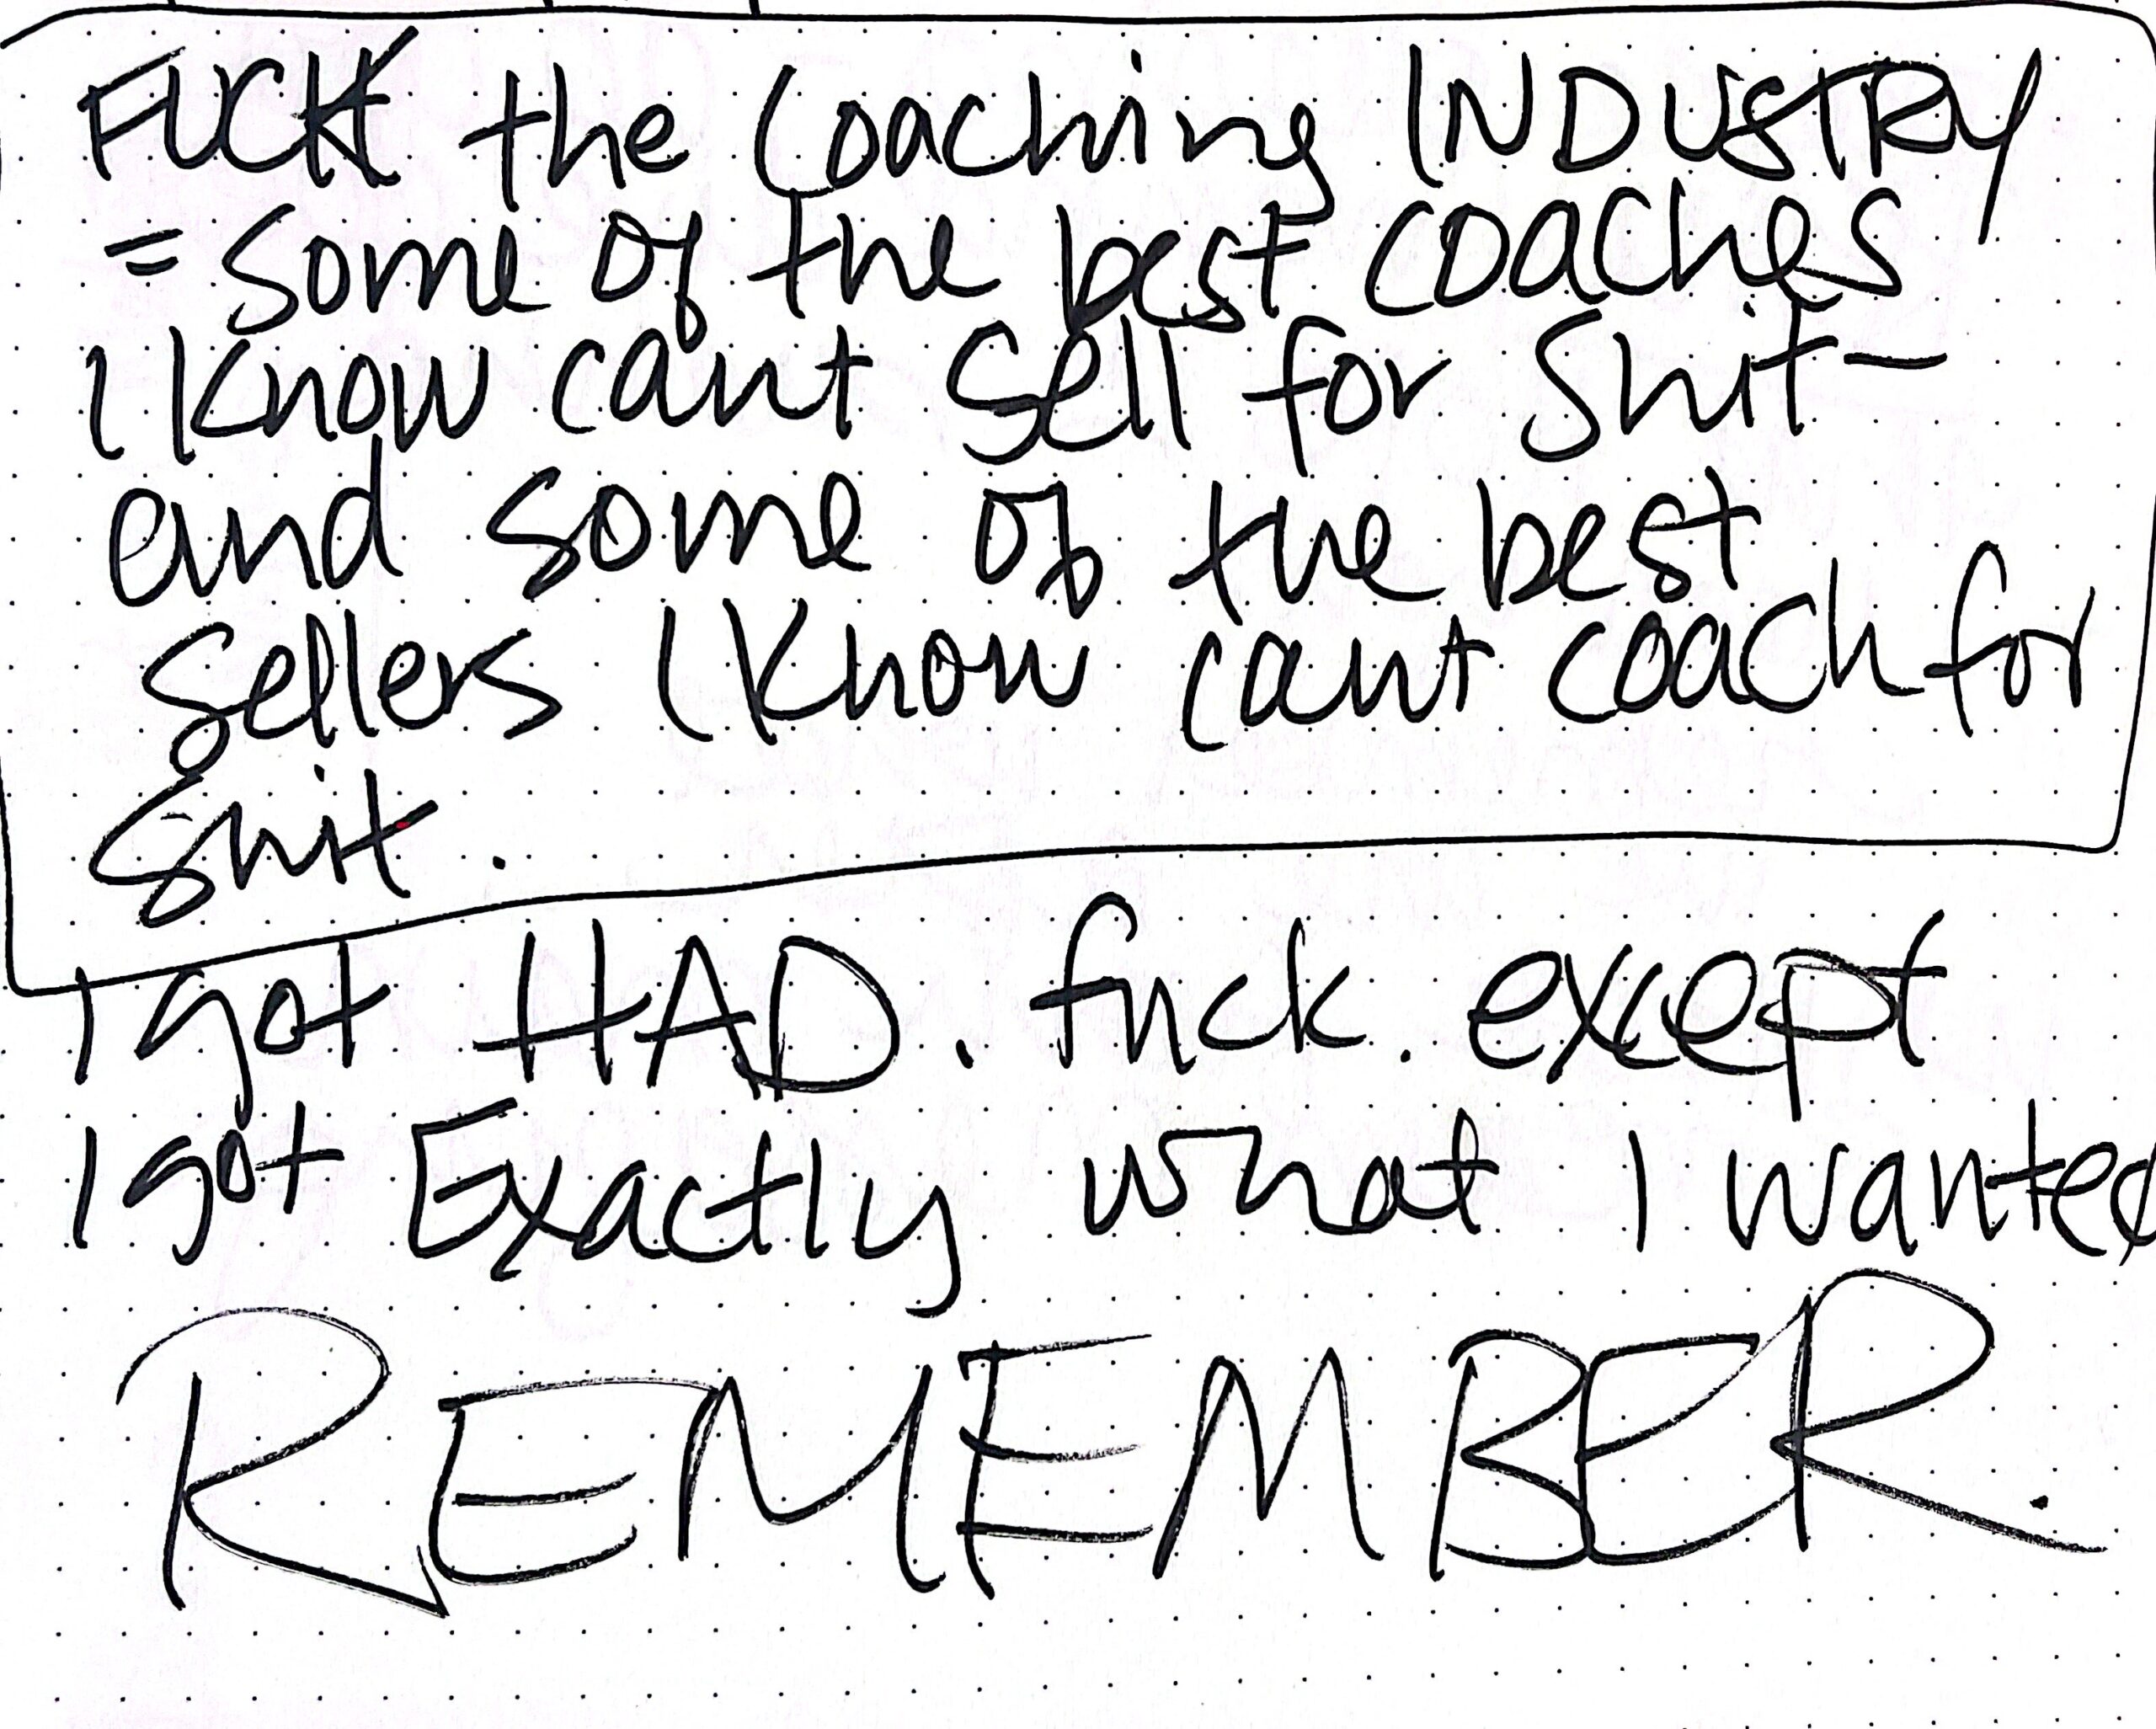 FUCK the Coaching INDUSTRY
= some of the best coaches
I know cant sell for shit –
and some of the best
sellers I know cant coach for
shit.
I got HAD. fuck. except
I got Exactly what I wanted
REMEMBER.